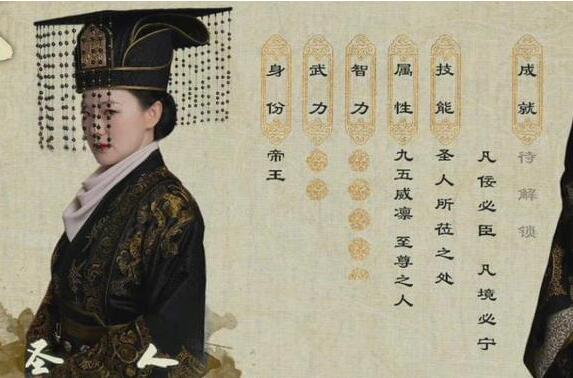 身份
帝王
武力
智力
属性
九五威凛 至尊之人
技能
圣人所莅之处
凡佞必臣 凡境必宁
成就
待解锁
圣人